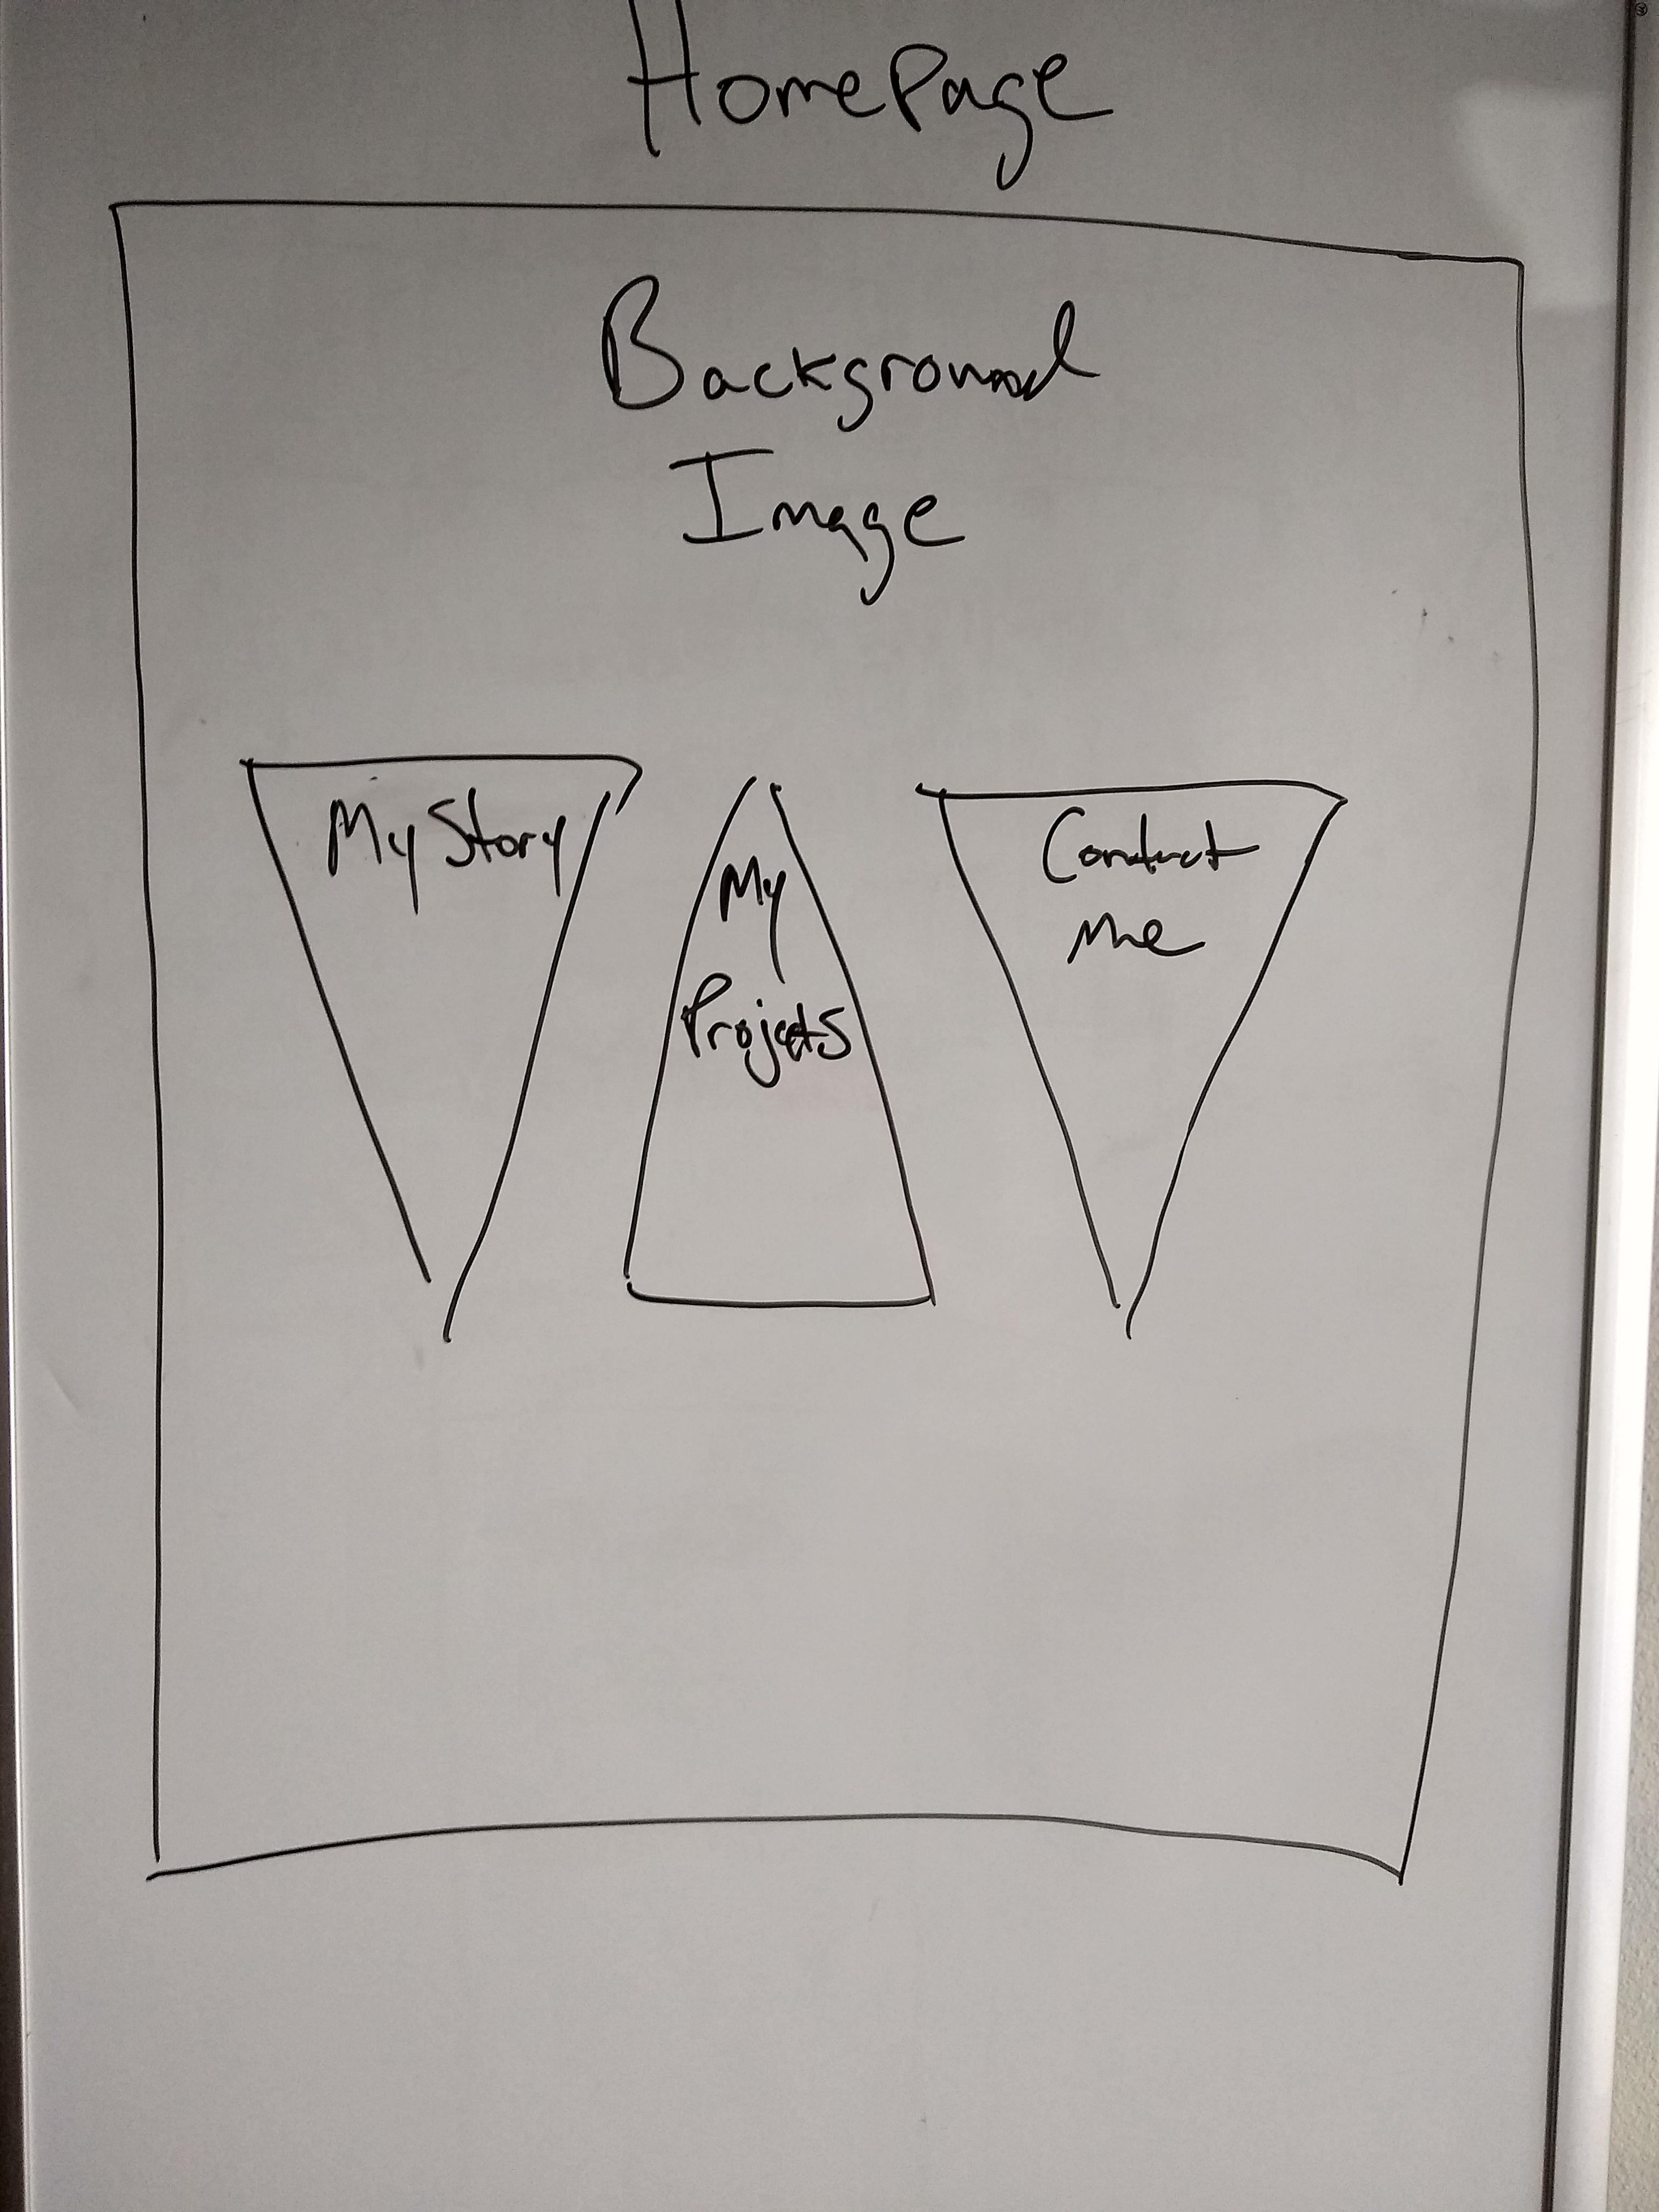 HomePage
Background
Image
My Story
My
Projects
Contact
Me